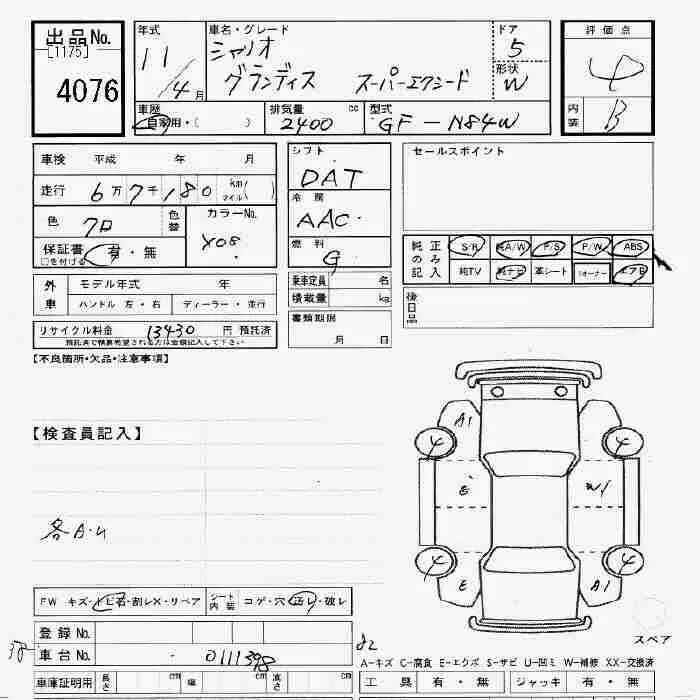 出品No.
[1175]
4076
年式
11/4月
車名・グレード
シャリオ
グランディス スーパーエクシード
ドア
5
形状
W
評価点
4
内装
B
車歴
自家用・( )
排気量 cc
2400
型式
GF-N84W
車検 平成 年 月
走行 6万7千180 km/マイル( )
色
クロ
色替
カラーNo.
X08
保証書 有・無
□を付ける
外車
モデル年式 年
ハンドル 左・右
ディーラー・並行
リサイクル料金 13430 円 預託済
シフト
DAT
冷房
AAC
燃料
G
乗車定員 名
積載量 kg
書類期限
月 日
セールスポイント
純正のみ記入
S/R A/W P/S P/W ABS
純TV 純ナビ 革シート 1オーナー エアB
後日品
【不良箇所・欠品・注意事項】
【検査員記入】
各A・U
A1
4 4
E W1
4 4
E A1
スペア
FW キズ・トビ石・割レX・リペア
シート内装 コゲ・穴・汚レ・破レ
登録No.
車台No. 0111398
82
A-キズ C-腐食 E-エクボ S-サビ U-凹ミ W-補修 XX-交換済
車庫証明用 長さ cm 幅 cm 高さ cm
工具 有・無 ジャッキ 有・無